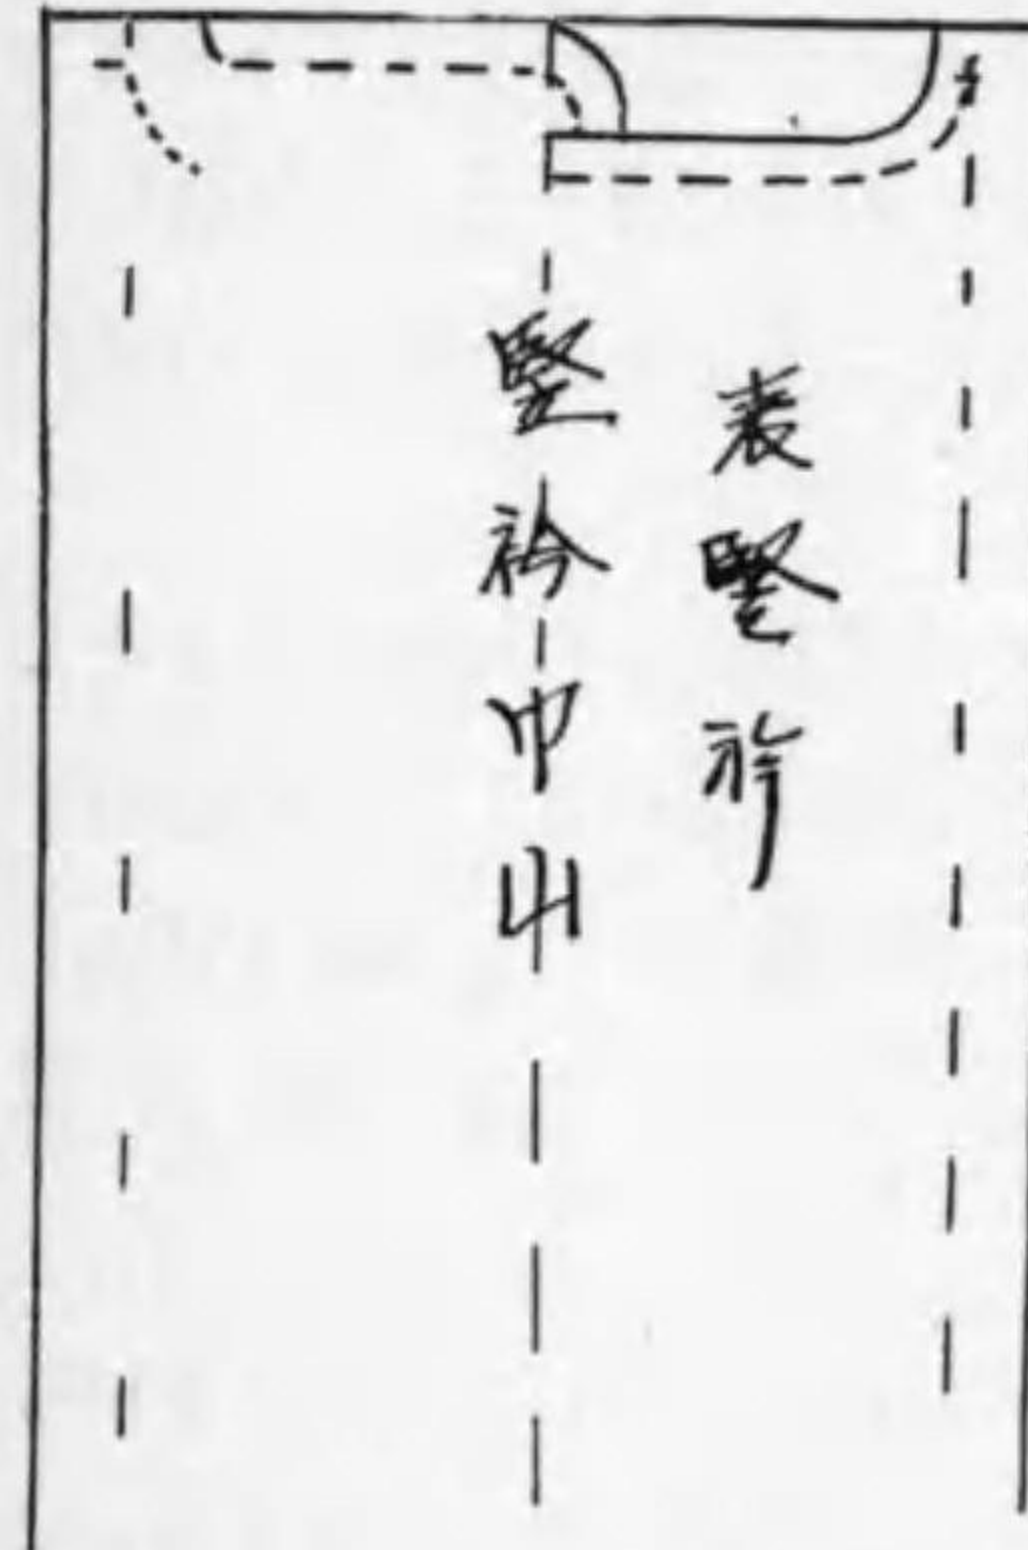 表竪衿
竪衿巾山